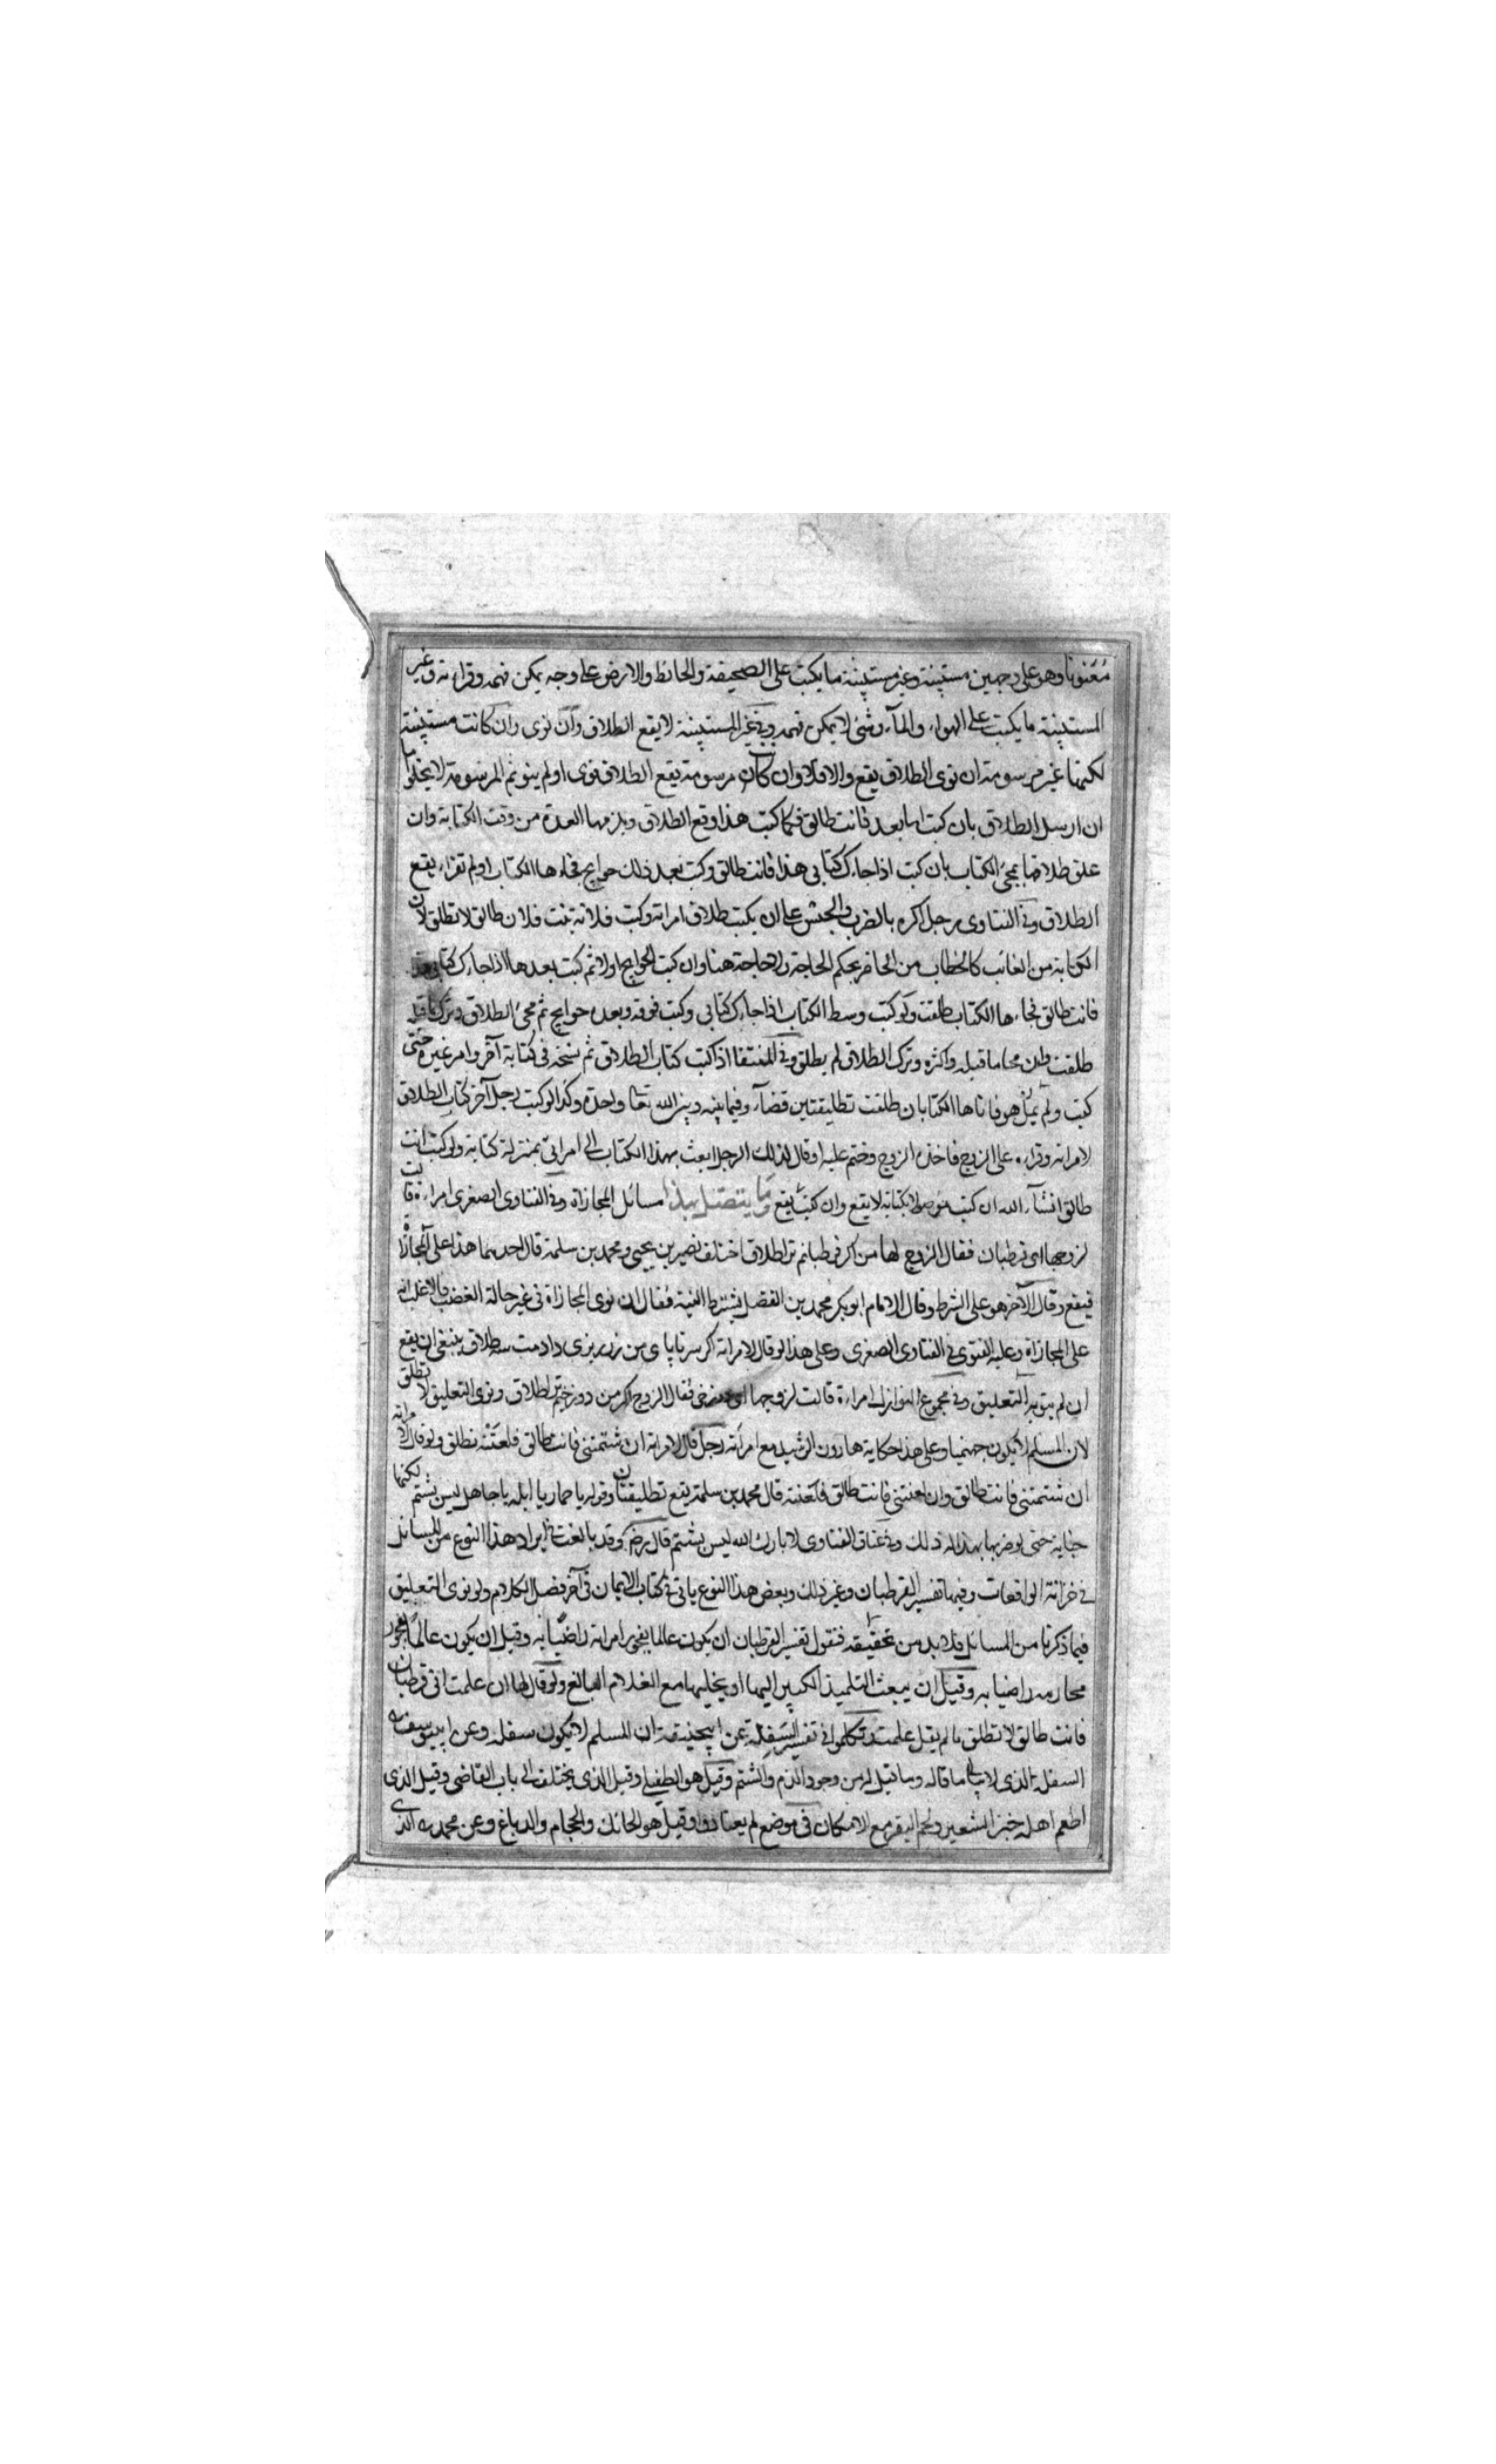 معنونا وهو على وجهين مستبينة وغير مستبينة ما يكتب على الصحيفة والحائط والارض على وجه يمكن فهمه وقراءته وغير
المستبينة ما يكتب على الهواء والماء وشئ لا يمكن فهمه وفي غير المستبينة لا يقع الطلاق وان نوى وان كانت مستبينة
لكنها غير مرسومة ان نوى الطلاق يقع والا فلا وان كانت مرسومة يقع الطلاق نوى او لم ينو ثم المرسومة لا يخلو اما
ان ارسل الطلاق بان كتب اما بعد فانت طالق فكما كتب هذا وقع الطلاق ويلزمها العدة من وقت الكتابة وان
علق طلاقها بمجئ الكتاب بان كتب اذا جاءك كتابى هذا فانت طالق وكتب بعد ذلك حوايج فجاءها الكتاب اولم تقراء يقع
الطلاق وفى الفتاوى رجل اكره بالضرب والحبس على ان يكتب طلاق امراته وكتب فلانة بنت فلان طالق لا تطلق لان
الكتابة من الغائب كالخطاب من الحاضر بحكم الحاجة ولا حاجة هنا وان كتب الحوايج اولا ثم كتب بعدها اذا جاءك كتابى هذا
فانت طالق فجاءها الكتاب طلقت ولو كتب وسط الكتاب اذا جاءك كتابى وكتب فوقه وبعده حوايج ثم محى الطلاق وترك ما قبله
طلقت وان محا ما قبله واكثره وترك الطلاق لم يطلق وفى المنتقا اذا كتب كتاب الطلاق ثم نسخه فى كتابة آخر وامر غيره حتى
كتب ولم يمل هو فاتاها الكتابان طلقت تطليقتين قضآء وفيما بينه وبين الله تعا واحدة وكذا لو كتب رجل آخر كتاب الطلاق
لامراته وقراءه على الزوج فاخذه الزوج وختم عليه او قال لذلك الرجل ابعث بهذا الكتاب الى امراتى بمنزلة كتابة ولو كتب انت
طالق انشآء الله ان كتب موصولا بكتابة لا يقع وان كتب يقع وما يتصل بهذا مسائل المجازاة وفى الفتاوى الصغرى امراءة قالت
لزوجها اى قرطبان فقال الزوج لها من اكر قرطبانم ترا طلاق اختلف نصير بن يحيى ومحمد بن سلمة قال احدهما هذا على المجازاة
فيقع وقال الآخر هو على الشرط وقال الامام ابو بكر محمد بن الفضل يشترط النية فقال ان نوى المجازاة فى غير حالة الغضب فالاغلب انه
على المجازاة وعليه الفتوى فى الفتاوى الصغرى وعلى هذا لو قال لامراته اكر سر تا پاى من زر بريزى دادمت سه طلاق ينبغى ان يقع
ان لم ينو به التعليق وفى مجموع النوازل امراءة قالت لزوجها اى دوزخى فقال الزوج اكر من دوزخيم ترا طلاق ونوى التعليق لا تطلق
لان المسلم لا يكون جهنميا وعلى هذا حكاية هارون الرشيد مع امرأته رجل قال لامراته ان شتمتنى فانت طالق فلعنته تطلق ولو قال لامراته
ان شتمتنى فانت طالق وان لعنتنى فانت طالق فلعنته قال محمد بن سلمة يقع تطليقتان وقوله يا حمار يا ابله يا جاهل ليس بشتم لكنها
جناية حتى لو ضربها بهذا له ذلك وفى عتاق الفتاوى لا بارك الله ليس بشتم قال رضـ وقد بالغت فى ايراد هذا النوع من المسائل
فى خزانة الواقعات وفيها تفسير القرطبان وغير ذلك وبعض هذا النوع ياتى فى كتاب الايمان فى آخر فصل الكلام ولو نوى التعليق
فيما ذكرنا من المسائل فلا بد من تحقيقه فنقول تفسير القرطبان ان يكون عالما بفجور امراته راضيا به وقيل ان يكون عالما بفجور
محارمه راضيا به وقيل ان يبعث التلميذ الكبير اليها او يخليها مع الغلام البالغ ولو قال لها ان علمت انى قرطبان
فانت طالق لا تطلق ما لم يقل علمت وتكلموا فى تفسير السفلة عن ابيحنيفة ان المسلم لا يكون سفله وعن ابييوسف
السفلة الذى لا يبالى ما قاله وما قيل له من وجوه الذم والشتم وقيل هو الطفيلى وقيل الذى يختلف الى باب القاضى وقيل الذى
اطعم اهله خبز الشعير ولحم البقر مع الامكان فى موضع لم يعتادوا وقيل هو الحائك والحجام والدباغ وعن محمد الذى